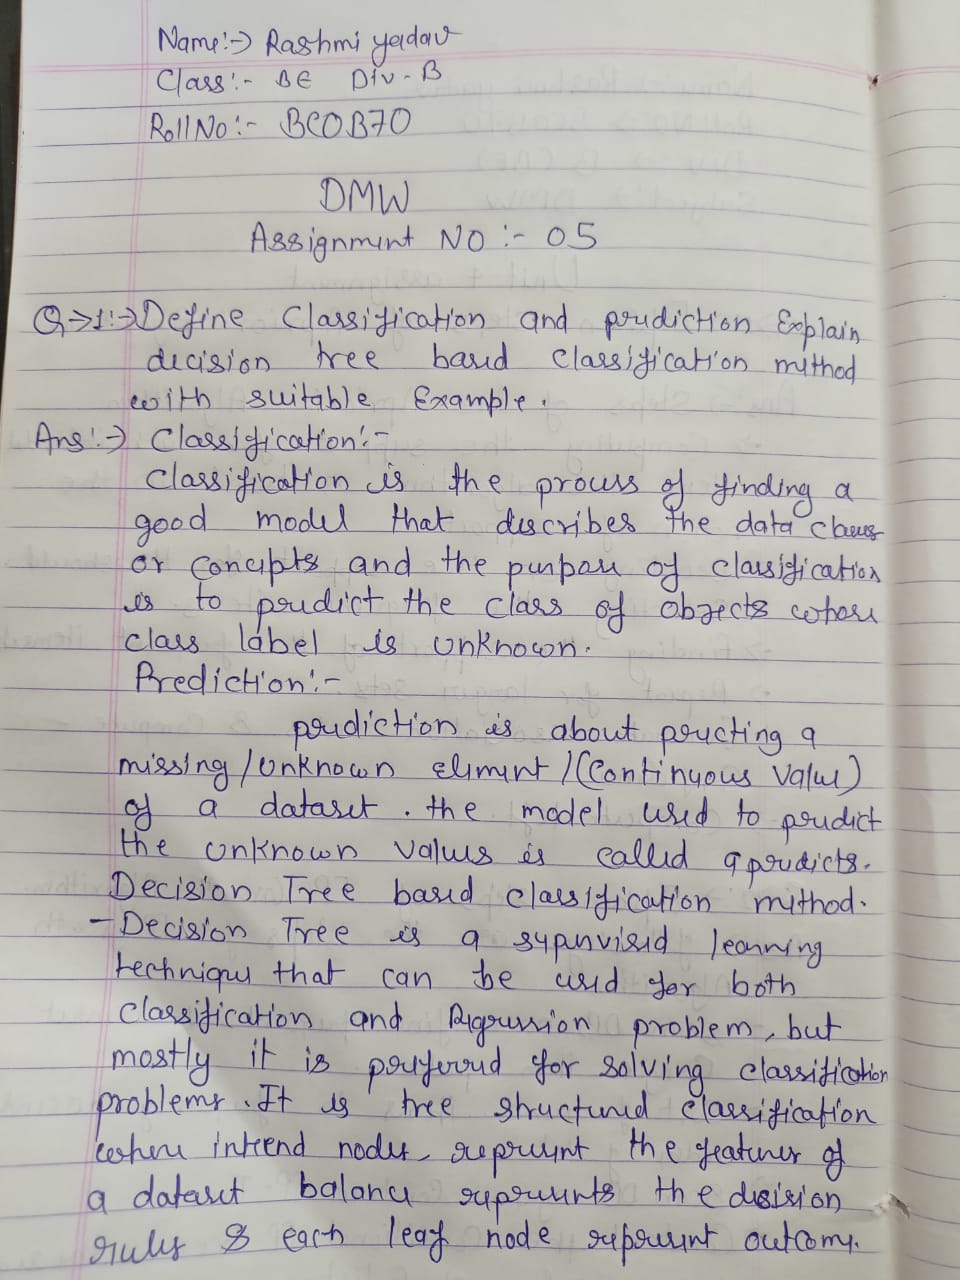 Name:-> Rashmi yadav
Class:- BE Div-B
Roll No:- BCOB70
DMW
Assignment NO:- 05
Q->1:-> Define Classification and prediction Explain
decision tree based classification method
with suitable Example.
Ans:-> Classification:-
Classification is the process of finding a
good model that describes the data classes
or concepts and the purpose of classification
is to predict the class of objects whose
class label is unknown.
Prediction:-
prediction is about preicting a
missing/unknown element/(Continuous Value)
of a dataset. the model used to predict
the unknown values is called a predicts.
Decision Tree based classification method.
- Decision Tree is a supervised learning
technique that can be used for both
classification and Regression problem, but
mostly it is preferred for solving classification
problems. It is tree structured classification
where internd nodes represent the features of
a dataset balance represents the decision
rules & each leaf node represent outcome.